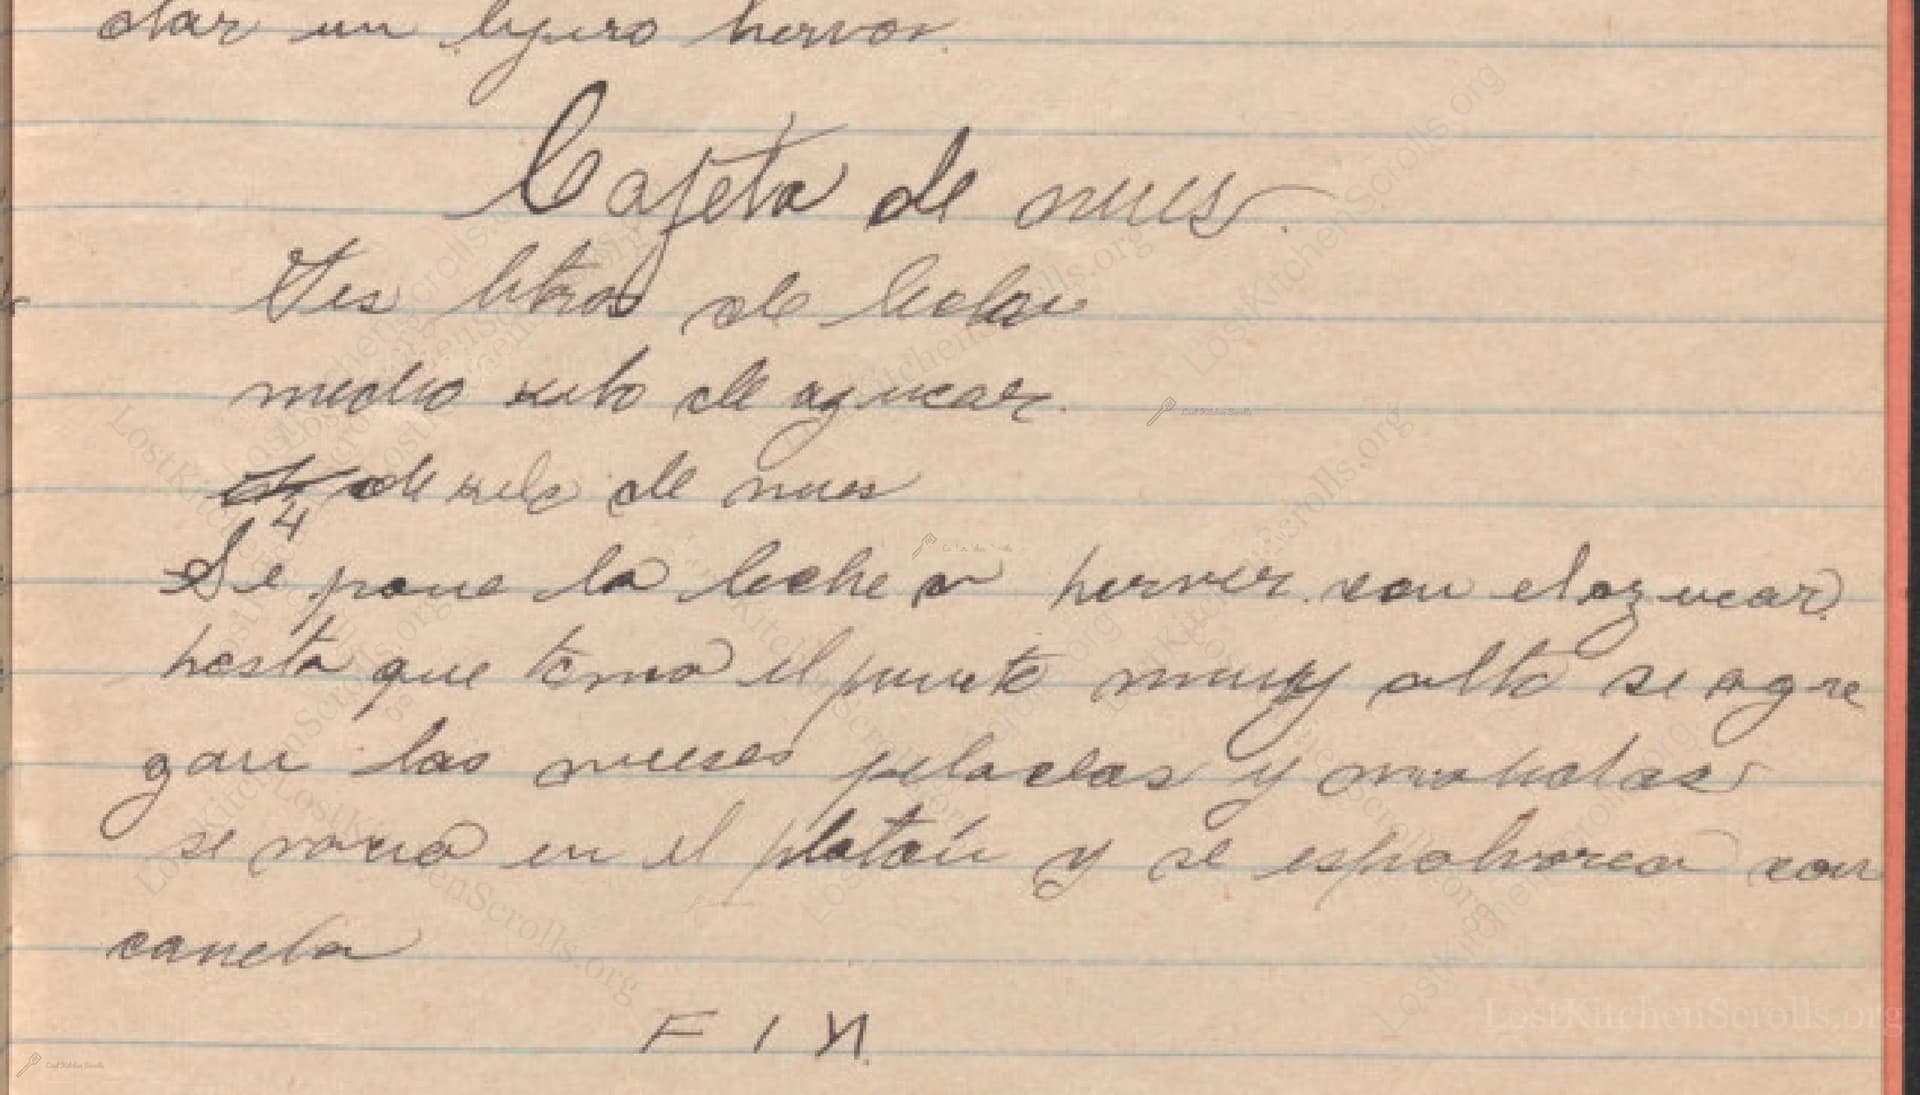 dar un lijero hervor.
Cajeta de nues.
Tes litros de leche
medio kilo de azucar.
4 de kilo de nues
Se pone la leche a herver con el azucar
hasta que tema el punto muy alto se agre
gan las nueses peladas y molidas
se vacia en el platón y se espolvorea con
canela
FIN.
LostKitchenScrolls.org